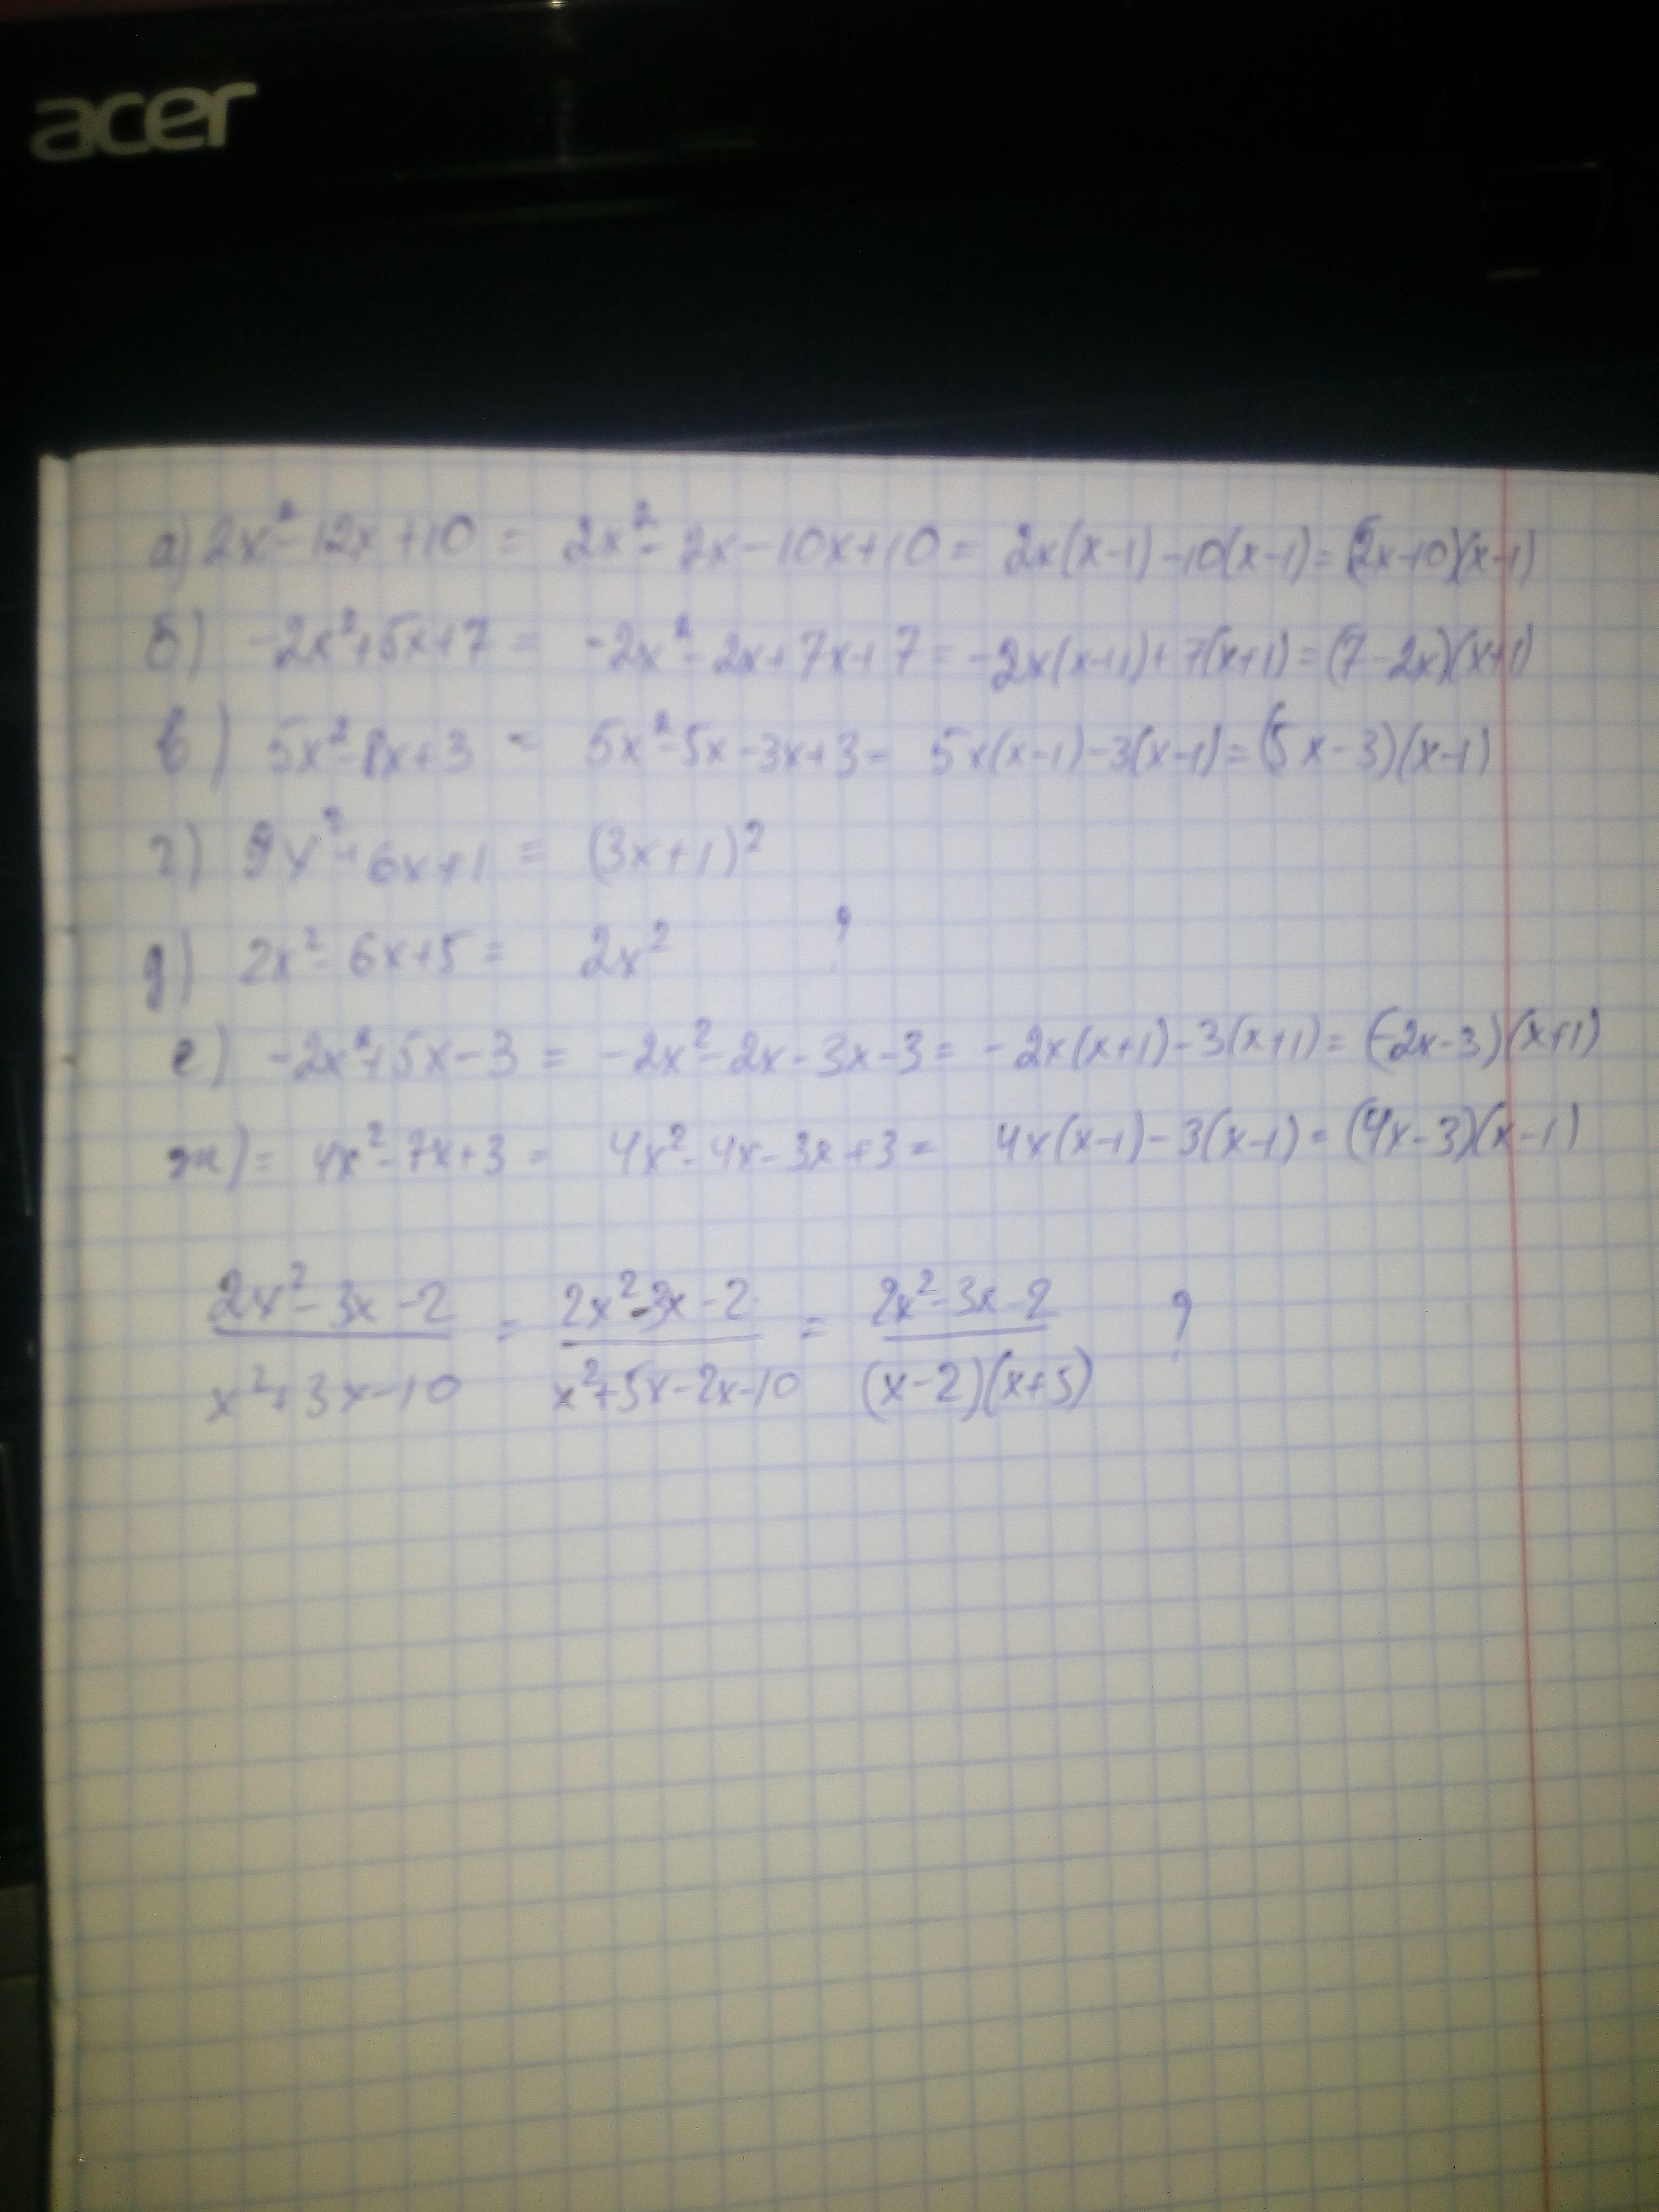 acer
а) 2x² - 12x + 10 = 2x² - 2x - 10x + 10 = 2x(x-1) - 10(x-1) = (2x-10)(x-1)
б) -2x² + 5x + 7 = -2x² - 2x + 7x + 7 = -2x(x+1) + 7(x+1) = (7-2x)(x+1)
в) 5x² - 8x + 3 = 5x² - 5x - 3x + 3 = 5x(x-1) - 3(x-1) = (5x-3)(x-1)
г) 9x² + 6x + 1 = (3x+1)²
д) 2x² - 6x + 5 = 2x² ?
е) -2x² + 5x - 3 = -2x² - 2x - 3x - 3 = -2x(x+1) - 3(x+1) = (-2x-3)(x+1)
ж) = 4x² - 7x + 3 = 4x² - 4x - 3x + 3 = 4x(x-1) - 3(x-1) = (4x-3)(x-1)
2x² - 3x - 2 = 2x² - 3x - 2 = 2x² - 3x - 2 ?
x² + 3x - 10 x² + 5x - 2x - 10 (x-2)(x+5)